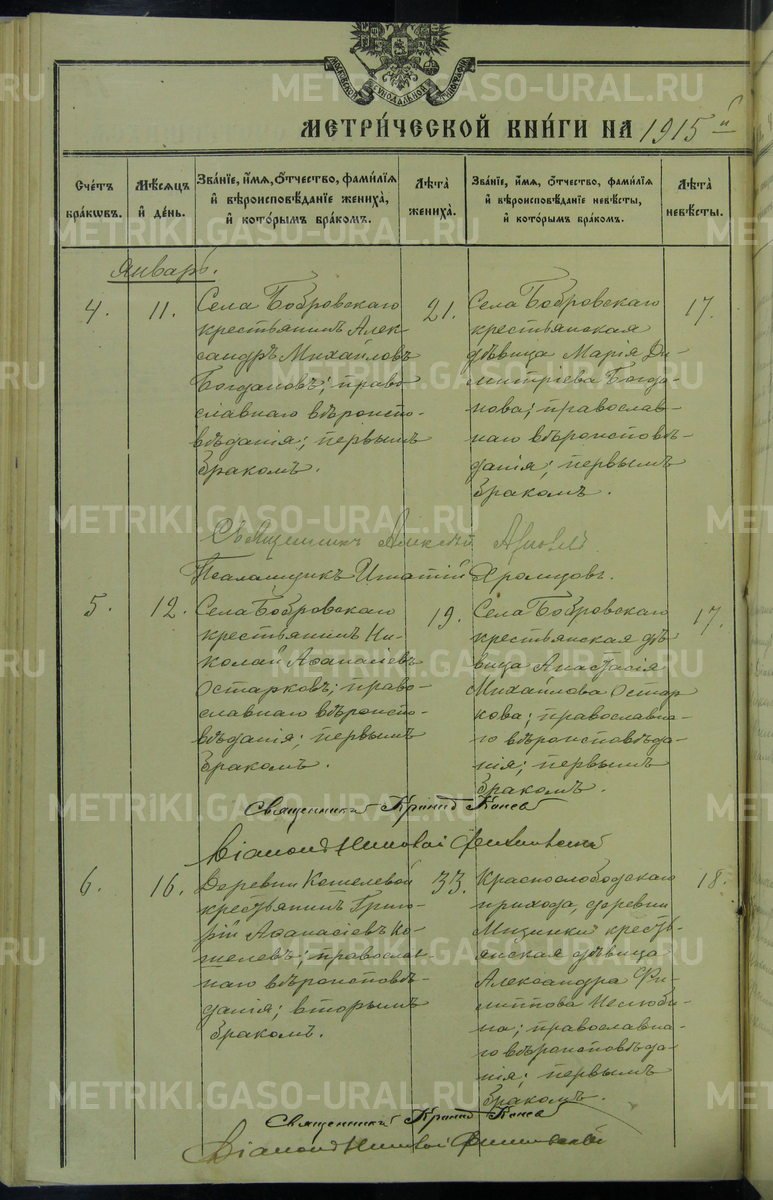 МЕТРИ́ЧЕСКОЙ КНИ́ГИ НА 1915 й
Сче́тъ бра́кωвъ.
Мѣ́сяцъ и҆ де́нь.
Зва́нїе, и҆́мѧ, о҆́тчество, фами́лїѧ и҆ вѣроисповѣ́данїе жениха̀, и҆ кото́рымъ бра́комъ.
Лѣ́та̀ жениха̀.
Зва́нїе, и҆́мѧ, о҆́тчество, фами́лїѧ и҆ вѣроисповѣ́данїе невѣ́сты, и҆ кото́рымъ бра́комъ.
Лѣ́та̀ невѣ́сты.
Январь.
4.
11.
Села Бобровскаго
крестьянинъ Алек-
сандръ Михайловъ
Богдановъ; право-
славнаго вѣроиспо-
вѣданія; первымъ
бракомъ.
21.
Села Бобровскаго
крестьянская
дѣвица Марія Ди-
митріева Богда-
нова; православ-
наго вѣроисповѣ-
данія; первымъ
бракомъ.
17.
Священникъ Алексѣй
Псаломщик Игнатій Хромцовъ.
5.
12.
Села Бобровскаго
крестьянинъ Ни-
колай Аѳанасіевъ
Остарковъ; право-
славнаго вѣроиспо-
вѣданія; первымъ
бракомъ.
19.
Села Бобровскаго
крестьянская дѣ-
вица Анастасія
Михайлова Остар
кова; православна-
го вѣроисповѣда-
нія; первымъ
бракомъ.
17.
Священникъ
Діаконъ Николай
6.
16.
Деревни Кошелевой
крестьянинъ Григо-
рій Аѳанасіевъ Ко-
шелевъ; православ-
наго вѣроисповѣ-
данія; вторымъ
бракомъ.
33.
Краснослободскаго
прихода, деревни
Мизинки кресть
янская дѣвица
Александра Фи-
липпова Неслюби-
на; православна-
го вѣроисповѣда-
нія; первымъ
бракомъ.
18.
Священникъ
Діаконъ Николай
METRIKI.GASO-URAL.RU